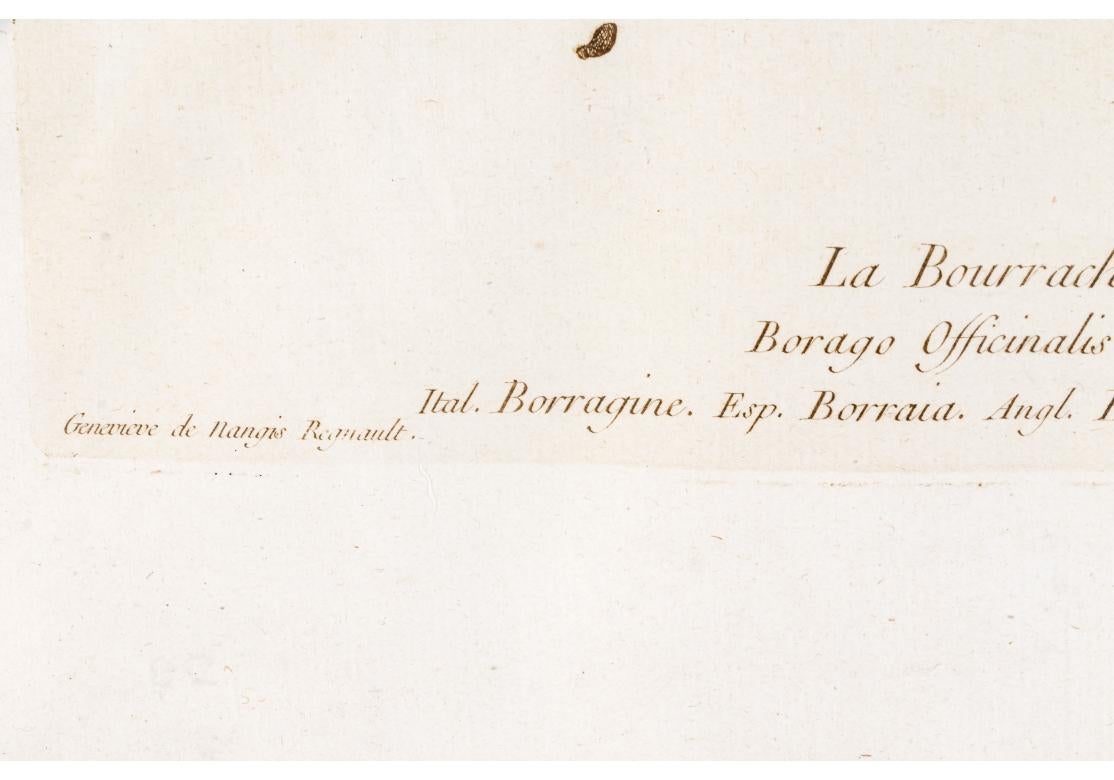 La Bourrach
Borago Officinalis
Ital. Borragine. Esp. Borraia. Angl.
Geneviéve de Nangis Regnault.